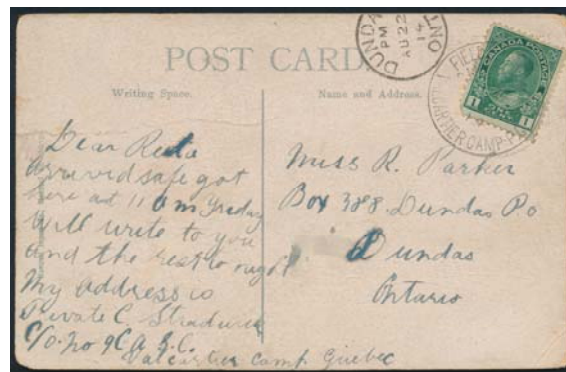 POST CARD.
Writing Space.
Name and Address.
DUNDAS
ONT
PM
AU 22
14
FIELD
CARTIER CAMP-P
CANADA POSTAGE
1 1
Dear Reda
arrived safe got
here at 11 am Friday
Will write to you
and the rest to night
My address is
Private C. Stradwick
C/O. No 9 C A S.C.
Valcartier Camp Quebec
Miss R. Parker
Box 388 Dundas Po
Dundas
Ontario